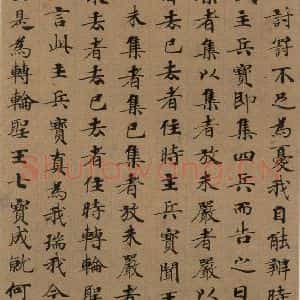 討罸不足為憂我自能辦時
試主兵寶即集四兵而告之曰
者集以集者放未嚴者嚴以
去者去已去者住時主兵寶聞王
未集者集已集者放未嚴者
去者去已去者住時轉輪聖
言此主兵寶真為我瑞我今
是為轉輪聖王七寶成就何